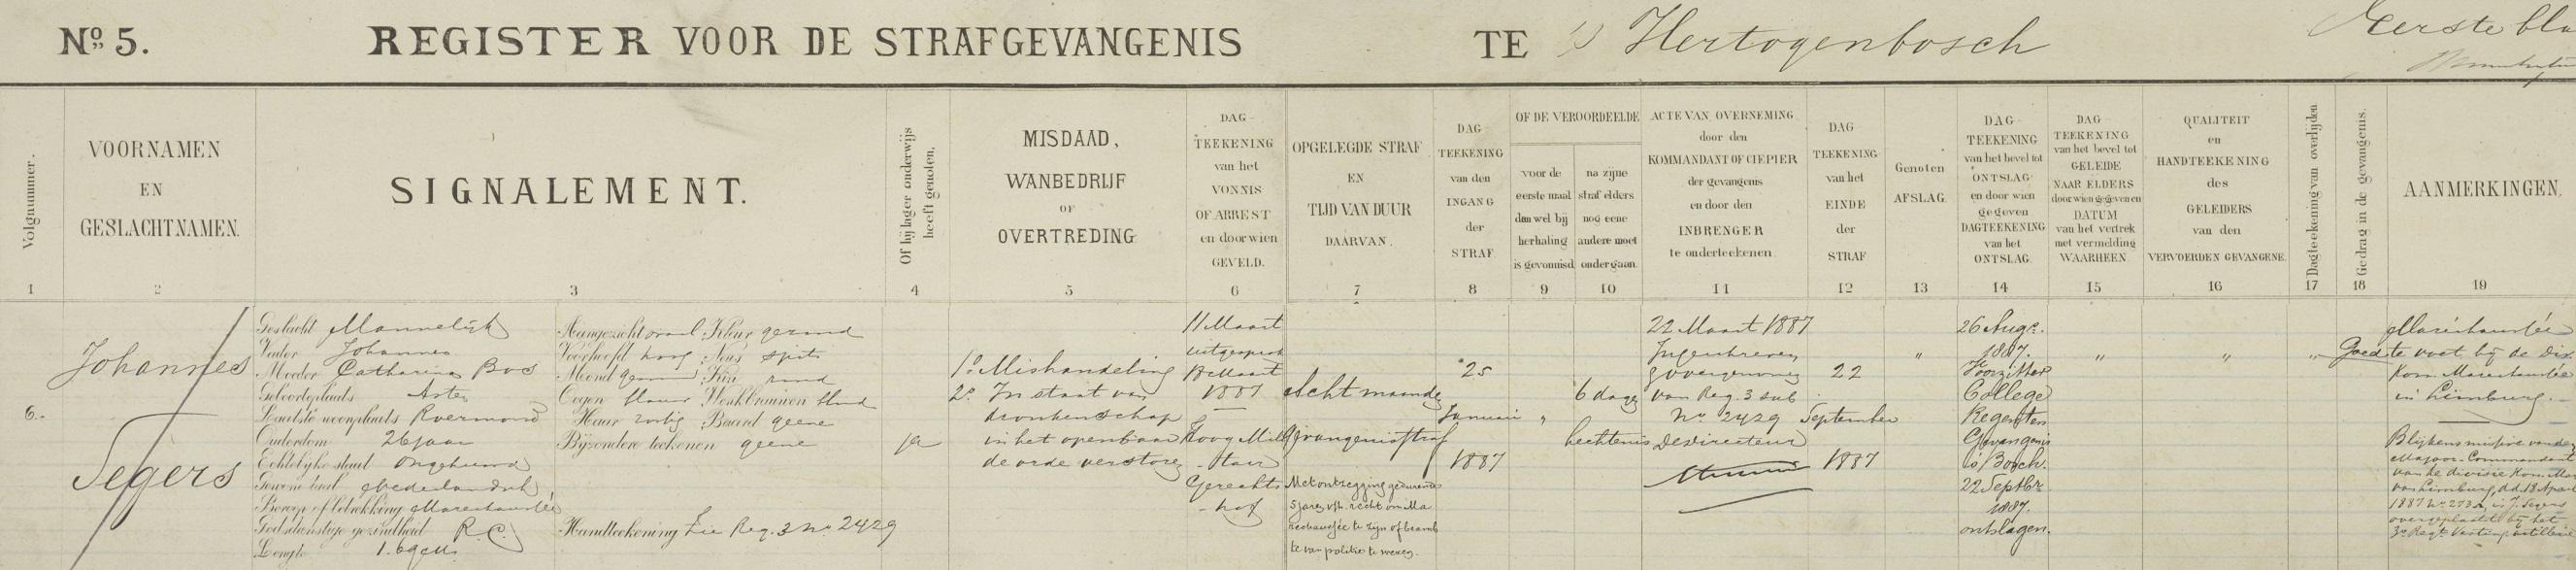 Nº 5. REGISTER VOOR DE STRAFGEVANGENIS TE 's Hertogenbosch
Eerste bla
Volgnummer.
1
VOORNAMEN
EN
GESLACHTNAMEN.
2
SIGNALEMENT.
3
Of hij lager onderwijs
heeft genoten,
4
MISDAAD,
WANBEDRIJF
OF
OVERTREDING
5
DAG
TEEKENING
van het
VONNIS
OF ARREST
en door wien
GEVELD.
6
OPGELEGDE STRAF
EN
TIJD VAN DUUR
DAARVAN.
7
DAG
TEEKENING
van den
INGANG
der
STRAF.
8
OF DE VEROORDEELDE
voor de
eerste maal
dan wel bij
herhaling
is gevonnisd
9
na zijne
straf elders
nog eene
andere moet
ondergaan.
10
ACTE VAN OVERNEMING
door den
KOMMANDANT OF CIEPIER
der gevangenis
en door den
INBRENGER
te onderteekenen.
11
DAG
TEEKENING
van het
EINDE
der
STRAF
12
Genoten
AFSLAG.
13
DAG
TEEKENING
van het bevel tot
ONTSLAG
en door wien
gegeven
DAGTEEKENING
van het
ONTSLAG.
14
DAG
TEEKENING
van het bevel tot
GELEIDE
NAAR ELDERS
door wien gegeven en
DATUM
van het vertrek
met vermelding
WAARHEEN.
15
QUALITEIT
en
HANDTEEKENING
des
GELEIDERS
van den
VERVOERDEN GEVANGENE.
16
Dagteekening van overlijden
17
Gedrag in de gevangenis.
18
AANMERKINGEN.
19
6.
Johannes
Segers
Geslacht Mannelijk
Vader Johannes
Moeder Catharina Bos
Geboorteplaats Asten
Laatste woonplaats Roermond
Ouderdom 26 jaar
Echtelijke staat Ongehuwd
Gewone taal Nederlandsch
Beroep of betrekking Marechaussée
Godsdienstige gezindheid R.C.
Lengte 1.69 cM.
Aangezicht ovaal, Kleur gezond
Voorhoofd hoog, Neus spits
Mond gewoon, Kin rond
Oogen blauw, Wenkbrauwen blond
Haar Baard geene
Bijzondere teekenen geene
Handteekening Zie Reg. 3 no 2429
ja
1º. Mishandeling
2º. In staat van
dronkenschap
in het openbaar
de orde verstoren
11 Maart
uitgesprok
18 Maart
1887
Hoog Mili
-tair
Gerechts
-hof
Acht maanden
Gevangenisstraf
Met ontzegging gedurende
5 jaren v/h. recht om Ma
rechaussée te zijn of beamb
te van politie te wezen.
25
Januari
1887
"
6 dagen
hechtenis
22 Maart 1887
Ingeschreven
overgenomen
van Reg. 3 sub
No. 2429
De Directeur
22
September
1887
"
26 Augs.
1887.
Voorzitter
College
Regenten
Gevangenis
's Bosch.
22 Septbr
1887.
ontslagen.
"
"
"
Goed
Marechaussée
te voet, bij de Div.
Kon. Marechaussée
in Limburg.
Blijkens missive van den
Majoor-Commandant
van de divisie Kon. Mar
van Limburg, d.d. 18 April
1887 No 273 is J. Segers
overgeplaatst bij het
3e Regt. Vesting artillerie